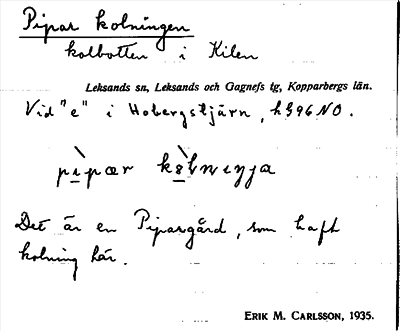 Pipar kolningen
kolbotten i Kilen
Leksands sn, Leksands och Gagnefs tg, Kopparbergs län.
Vid "e" i Hobergstjärn, h596NO.
Det är en Piparsgård, som haft
kolning här.
ERIK M. CARLSSON, 1935.